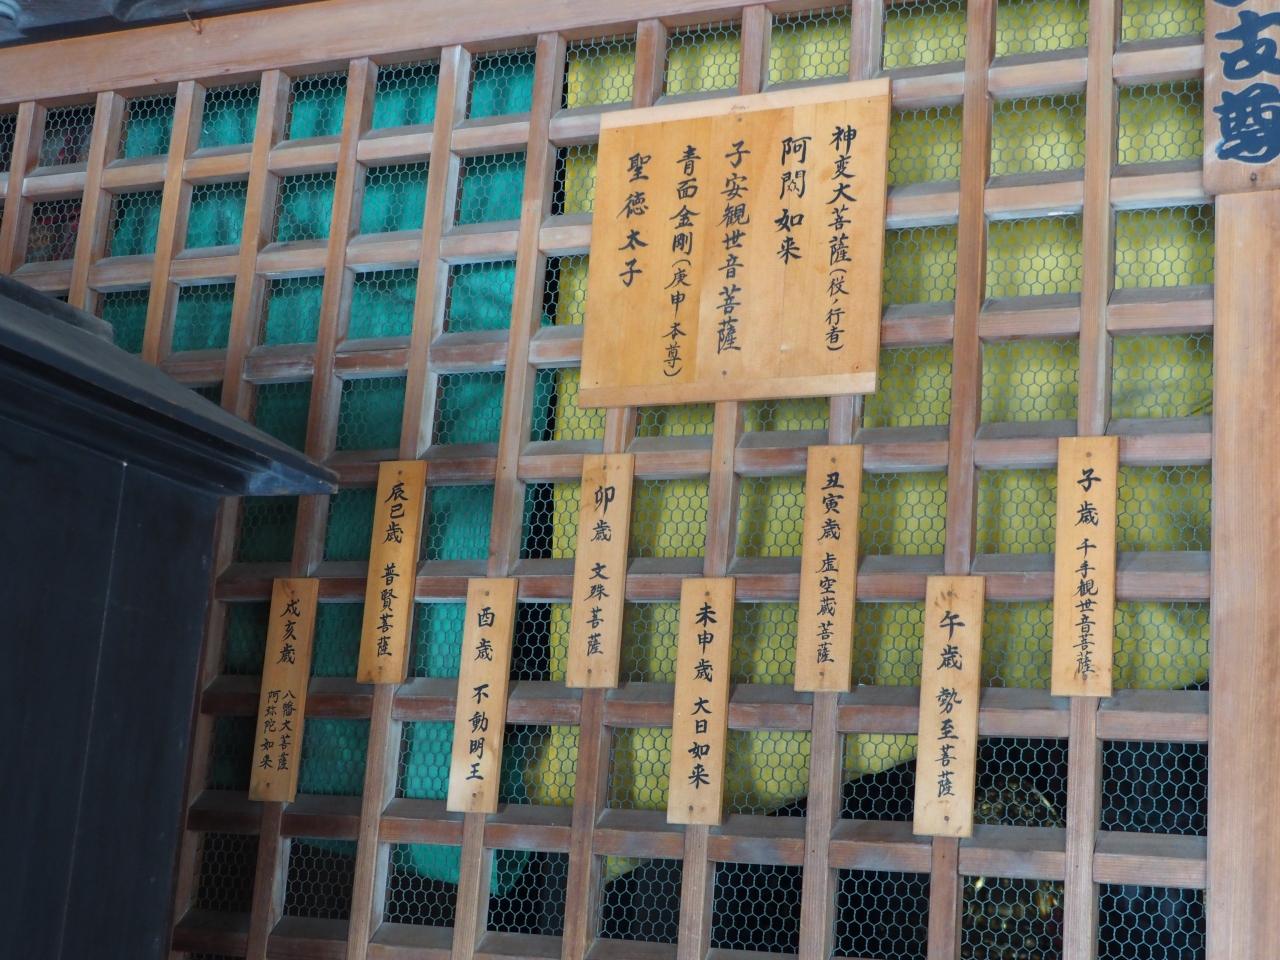 友尊
神変大菩薩(役ノ行者)
阿閦如来
子安観世音菩薩
青面金剛(庚申本尊)
聖徳太子
子歳 千手観世音菩薩
午歳 勢至菩薩
丑寅歳 虚空蔵菩薩
未申歳 大日如来
卯歳 文殊菩薩
酉歳 不動明王
辰巳歳 普賢菩薩
戌亥歳 八幡大菩薩
阿弥陀如来